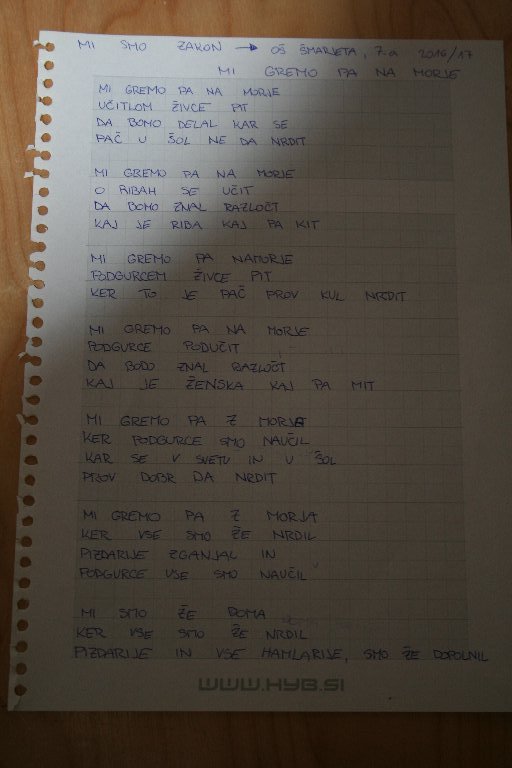 MI SMO ZAKON → OŠ ŠMARJETA, 7.a 2016/17
MI GREMO PA NA MORJE
MI GREMO PA NA MORJE
UČITLOM ŽIVCE PIT
DA BOMO DELAL KAR SE
PAČ U ŠOL NE DA NRDIT
MI GREMO PA NA MORJE
O RIBAH SE UČIT
DA BOMO ZNAL RAZLOČT
KAJ JE RIBA KAJ PA KIT
MI GREMO PA NAMORJE
PODGURCEM ŽIVCE PIT
KER TO JE PAČ PROV KUL NRDIT
MI GREMO PA NA MORJE
PODGURCE PODUČIT
DA BODO ZNAL RAZLOČT
KAJ JE ŽENSKA KAJ PA MIT
MI GREMO PA Z MORJA
KER PODGURCE SMO NAUČIL
KAR SE V SVETU IN U ŠOL
PROV DOBR DA NRDIT
MI GREMO PA Z MORJA
KER VSE SMO ŽE NRDIL
PIZDARIJE ZGANJAL IN
PODGURCE VSE SMO NAUČIL
MI SMO ŽE DOMA
KER VSE SMO ŽE NRDIL
PIZDARIJE IN VSE HAMLARIJE, SMO ŽE DOPOLNIL
WWW.HYB.SI